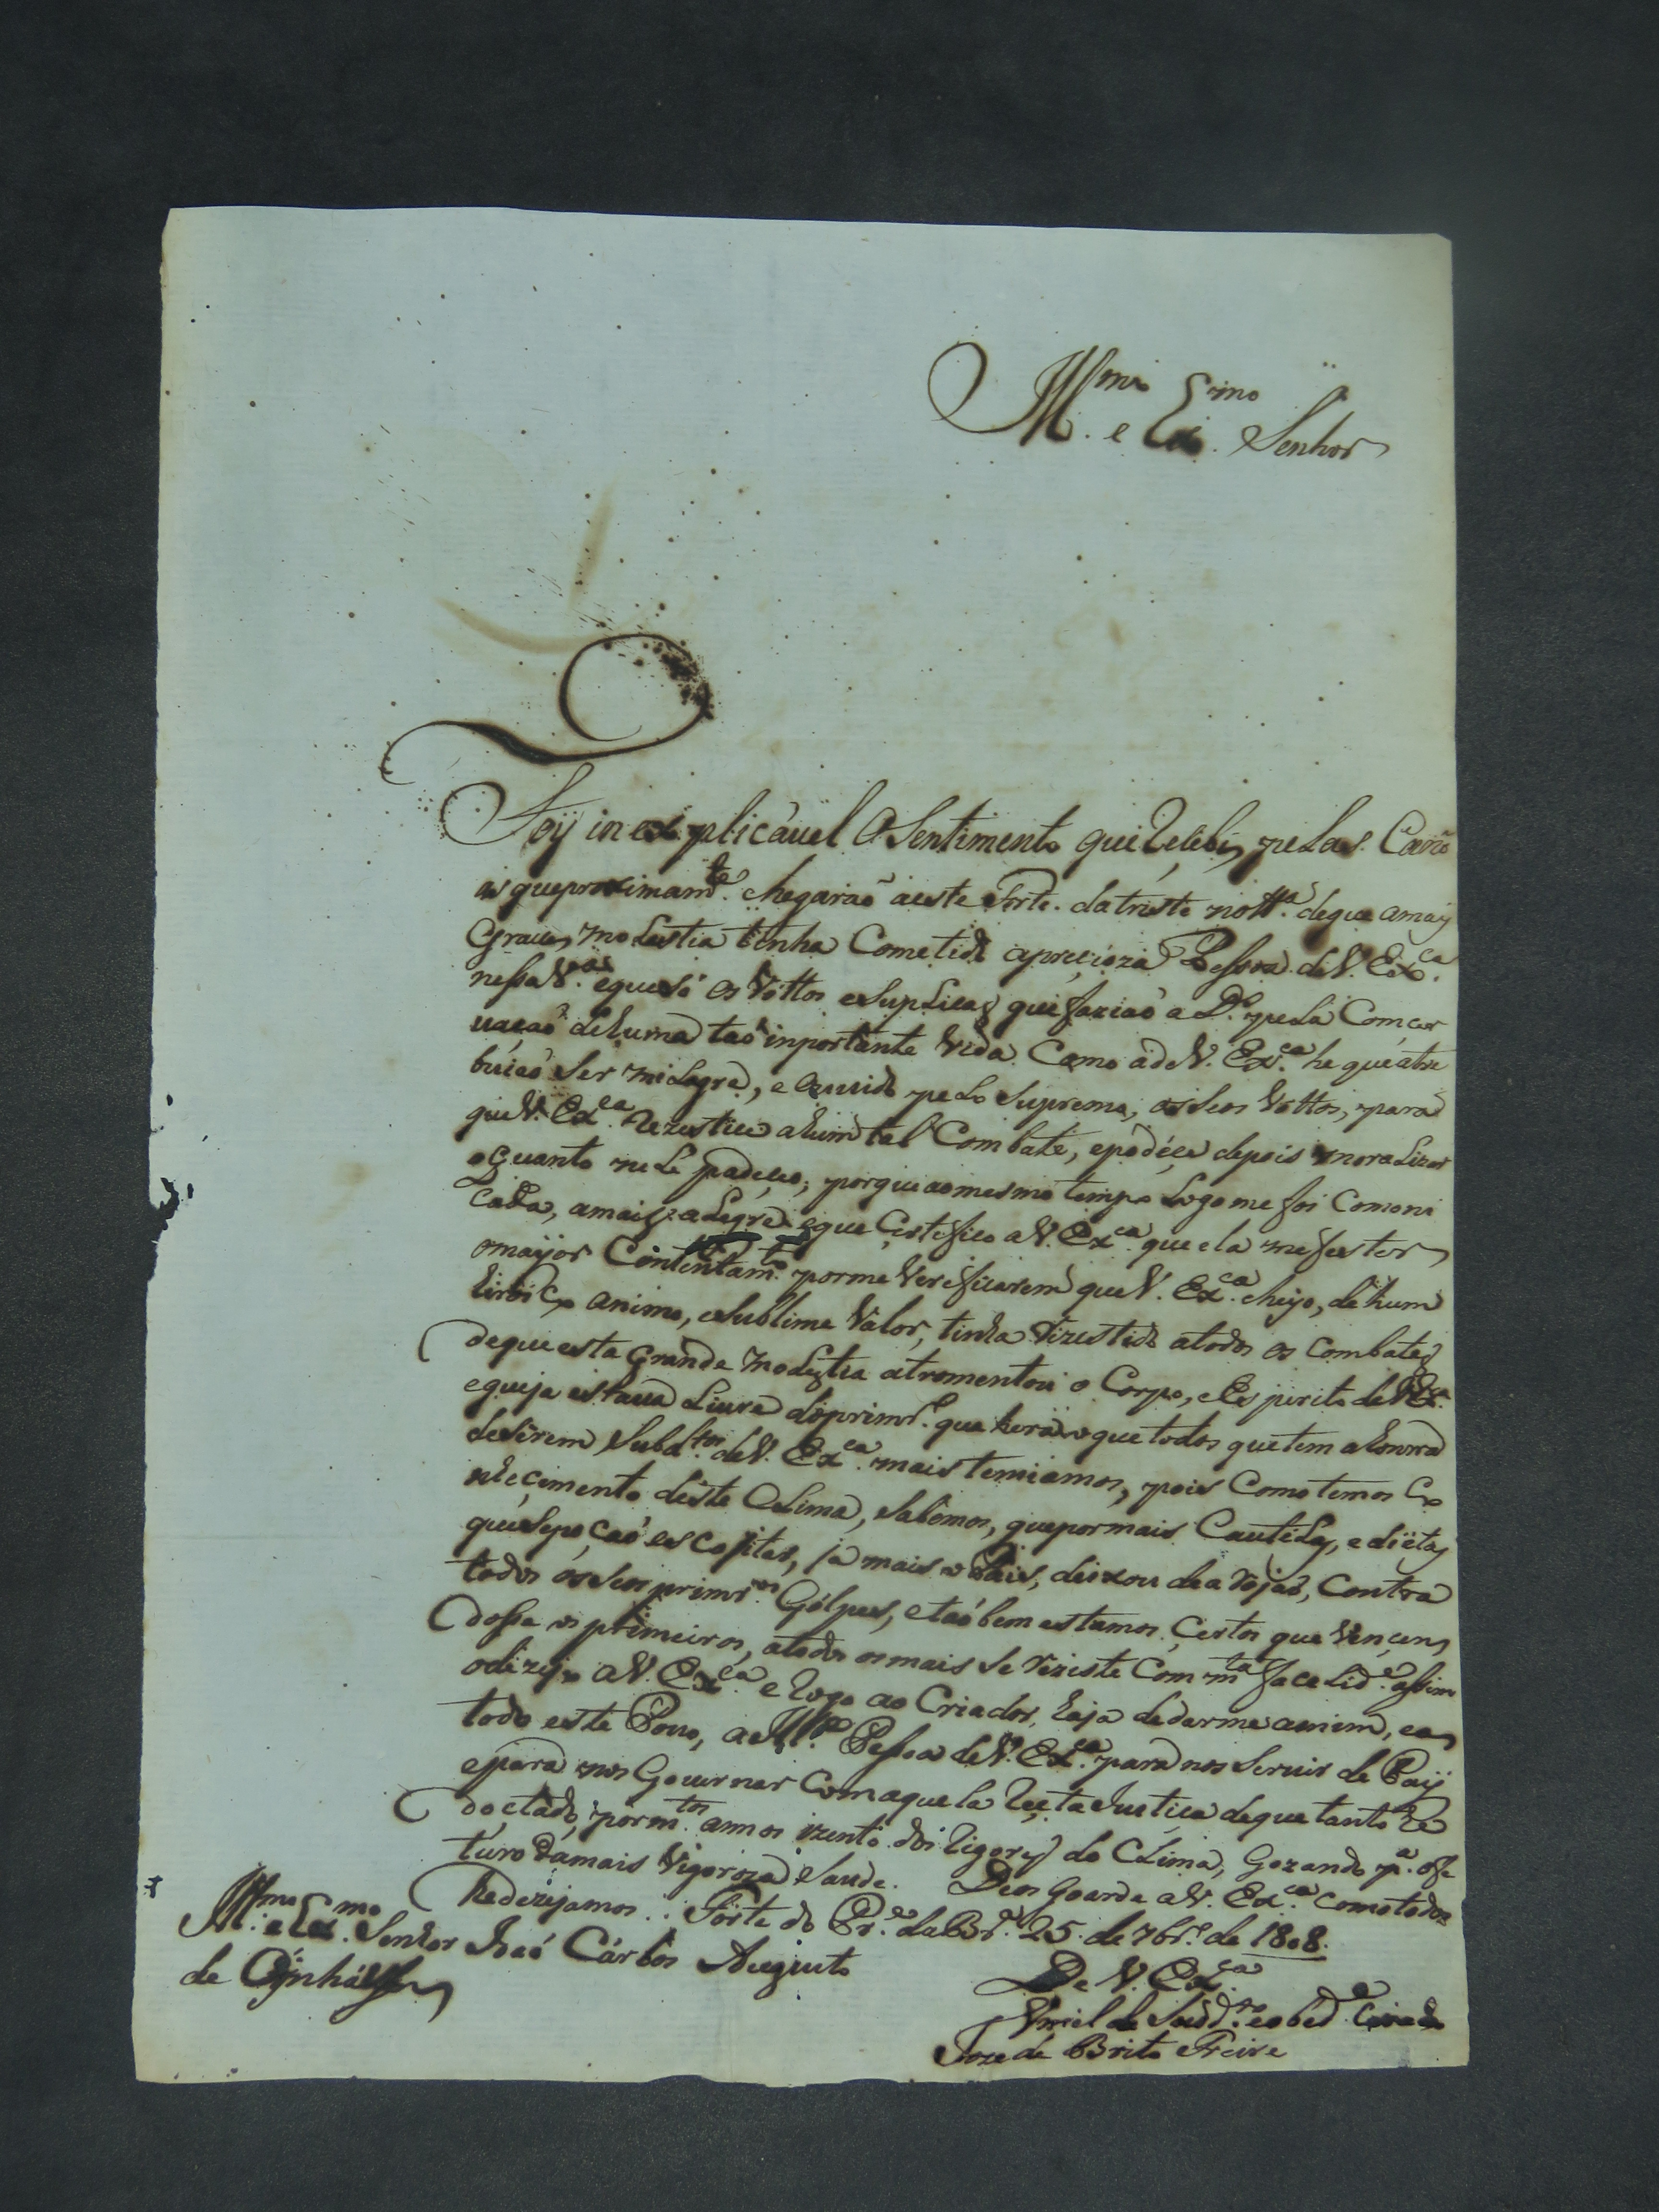 Illmo e Exmo Senhor
Foÿ inexplicàuel o Sentimento que recebi, pelas Cano
as que proximamte. chegaraõ aeste Forte. da triste nottª. de que amaiȷ
Graue, molestia tinha Cometido aprecióza Pessoa de V. Exca.
nessa Vª. e que só os Vottos e suplicaȷ que faziaõ a Ds. pela Comcer
uaçaõ de huma taõ inportante Vida Como ade V. Exca. he que atre
buiaõ ser milagre, e Ouuido pelo Supremo, os seos Vottos, para
que V. Exca. rezustice ahum tal Combate, epodéce depois moralizar
oquanto nele padeceo; porque aomesmo tempo Logo me foi Comoni
cada, amais alegre eque Certefico a V. Exca. que ela me fes ter
omaÿor Contentamto. por me Vereficarem que V. Exca. cheijo, de hum
hiroico animo, e sublime Valor, tinha rizustido atodos os Combates
de que esta Grande molestia atromentou o Corpo, e Espirito de V. Exca.
e que ja estaua Liure doprimro. que hera o que todos que tem ahonrra
deSerem Subdtos. de V. Exca. mais temiamos, pois Como temos Co
nhecimento deste Clima, sabemos, que por mais Cautelas, e diëtas
que sepoçaõ escojitar, ja mais o Pais, deixou de arojar, Contra
todos os seos primros. Gólpes, e taõ bem estamos Certos que Vencen
dosse os primeiros, atodos os mais se reziste Com mta. facelide. assim
odezejo aV. Exca. e rogo ao Criador, haja dedarme amim, ea
todo este Pouo, a Illma. Pessoa de V. Exca. para nos Seruir de Paÿ
epara nos Gouernar Com aquela recta Justica de que tanto he
doctado, por mtos. annos izento dos rigores do Clima, Gozando pª. ofu
turo damais Vigoroza Saude. Deos Goarde aV. Exca. como todos
hedezejamos. Forte do Pr.e da Br.ª 25 de 7br.º de 1808.
De V. Exca.
Umilde Subdto. e obede. Criado
Joze de Brito Freire
Illmo e Exmo. Senhor Joaõ Cárlos Augusto
de Oÿnhausen